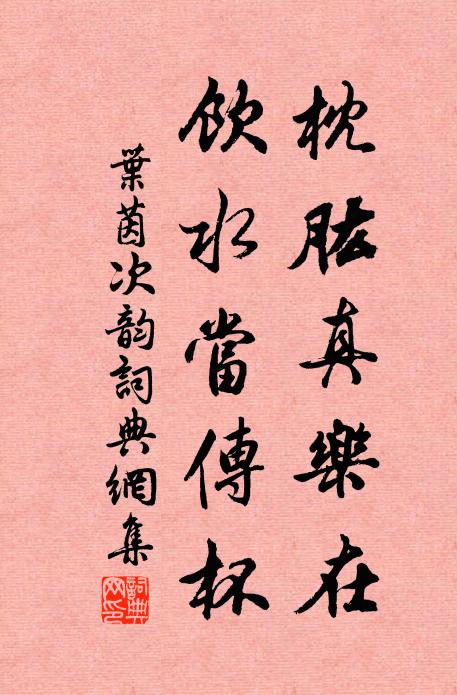 枕肱真樂在
飲水當傳杯
葉茵次韵詞典網集
詞典网印